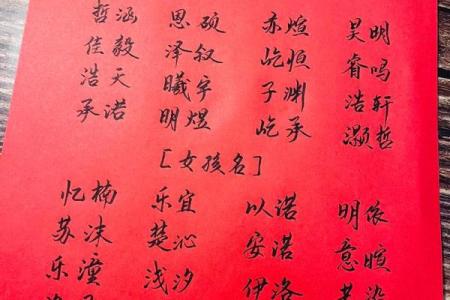 哲涵 思硕 亦煊 昊明
佳毅 泽叙 屹恒 睿鸣
浩天 曦宇 子渊 浩轩
承诺 明煜 屹承 灏哲
[女孩名]
忆楠 乐宜 以诺 明依
苏沫 楚沁 安诺 意暄
乐潼 浅汐 伊洛